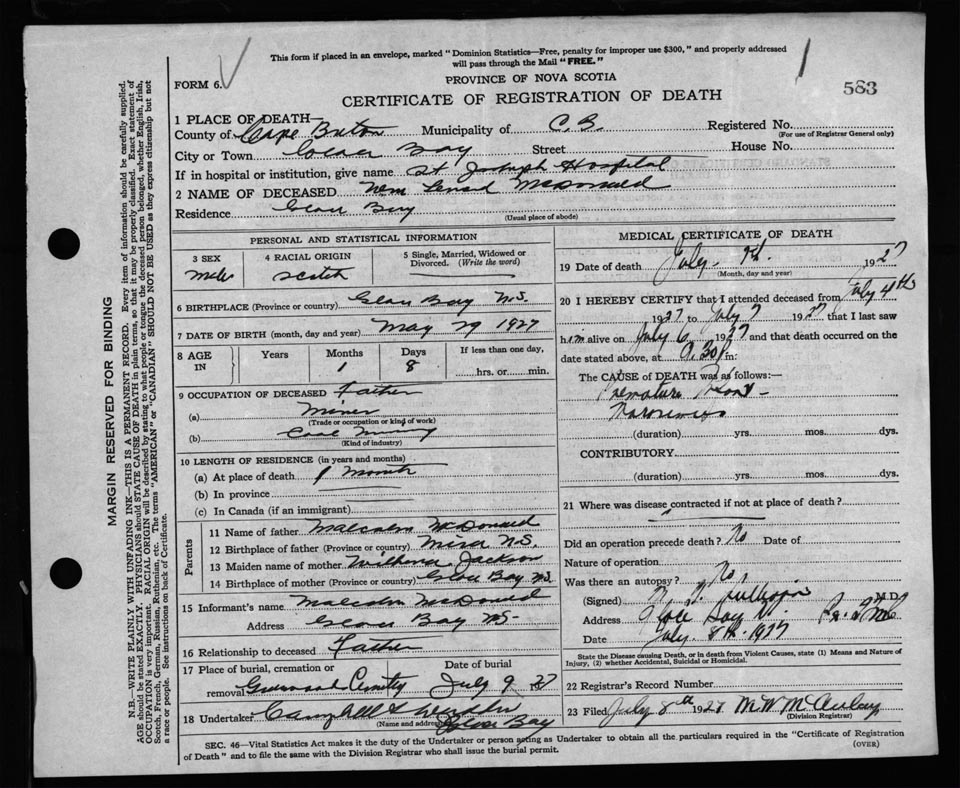 This form if placed in an envelope, marked "Dominion Statistics—Free, penalty for improper use $300," and properly addressed
will pass through the Mail "FREE."
FORM 6.
PROVINCE OF NOVA SCOTIA
583
CERTIFICATE OF REGISTRATION OF DEATH
1 PLACE OF DEATH—
County of Cape Breton Municipality of C. B. Registered No.
(For use of Registrar General only)
City or Town Glace Bay Street House No.
If in hospital or institution, give name St. Joseph Hospital
2 NAME OF DECEASED Wm McDonald
Residence Glace Bay
(Usual place of abode)
PERSONAL AND STATISTICAL INFORMATION
3 SEX 4 RACIAL ORIGIN 5 Single, Married, Widowed or Divorced. (Write the word)
Male Scotch
6 BIRTHPLACE (Province or country) Glace Bay N.S.
7 DATE OF BIRTH (month, day and year) May 29 1927
8 AGE IN Years Months Days If less than one day,
1 8 hrs. or min.
9 OCCUPATION OF DECEASED Father
(a) Miner
(Trade or occupation or kind of work)
(b) Coal Mining
(Kind of industry)
10 LENGTH OF RESIDENCE (in years and months)
(a) At place of death 1 Month
(b) In province
(c) In Canada (if an immigrant)
Parents
11 Name of father Malcolm McDonald
12 Birthplace of father (Province or country) Mira N.S.
13 Maiden name of mother Jackson
14 Birthplace of mother (Province or country) Glace Bay N.S.
15 Informant's name Malcolm McDonald
Address Glace Bay N.S.
16 Relationship to deceased Father
17 Place of burial, cremation or removal Date of burial
Greenwood July 9 27
18 Undertaker Campbell &
(Name and address) Glace Bay
MEDICAL CERTIFICATE OF DEATH
19 Date of death July 7th. 1927
(Month, day and year)
20 I HEREBY CERTIFY that I attended deceased from July 4th
1927 to July 7 1927 that I last saw
him alive on July 6 1927 and that death occurred on the
date stated above, at 9.30 m:
The CAUSE of DEATH was as follows:—
Premature Birth
(duration) yrs. mos. dys.
CONTRIBUTORY
(duration) yrs. mos. dys.
21 Where was disease contracted if not at place of death?
Did an operation precede death? No Date of
Nature of operation
Was there an autopsy? No
(Signed) M.D.
Address Glace Bay
Date July 8th. 1927
State the Disease causing Death, or in death from Violent Causes, state (1) Means and Nature of
Injury, (2) whether Accidental, Suicidal or Homicidal.
22 Registrar's Record Number
23 Filed July 8th 1927 M W McAulay
(Division Registrar)
SEC. 46—Vital Statistics Act makes it the duty of the Undertaker or person acting as Undertaker to obtain all the particulars required in the "Certificate of Registration
of Death" and to file the same with the Division Registrar who shall issue the burial permit.
(OVER)
MARGIN RESERVED FOR BINDING
N.B.—WRITE PLAINLY WITH UNFADING INK—THIS IS A PERMANENT RECORD. Every item of information should be carefully supplied.
AGE should be stated EXACTLY. PHYSICIANS should STATE CAUSE OF DEATH in plain terms, so that it may be properly classified. Exact statement of
OCCUPATION is very important. RACIAL ORIGIN will be described by stating to what people or tongue the deceased person belonged, whether English, Irish,
Scotch, French, German, Russian, Ruthenian, etc. The terms "AMERICAN" or "CANADIAN" SHOULD NOT BE USED as they express citizenship but not
a race or people. See instructions on back of Certificate.